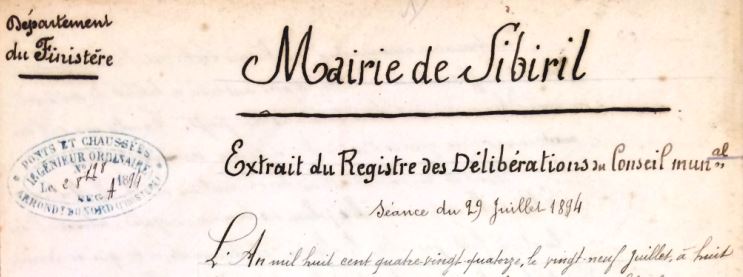 Département
du Finistère
Mairie de Sibiril
PONTS ET CHAUSSÉES
INGÉNIEUR ORDINAIRE
Le 28 1894
ARRONDT DU NORD
Extrait du Registre des Délibérations du Conseil mun.al
Séance du 29 Juillet 1894
L'An mil huit cent quatre-vingt quatorze, le vingt-neuf Juillet, à huit